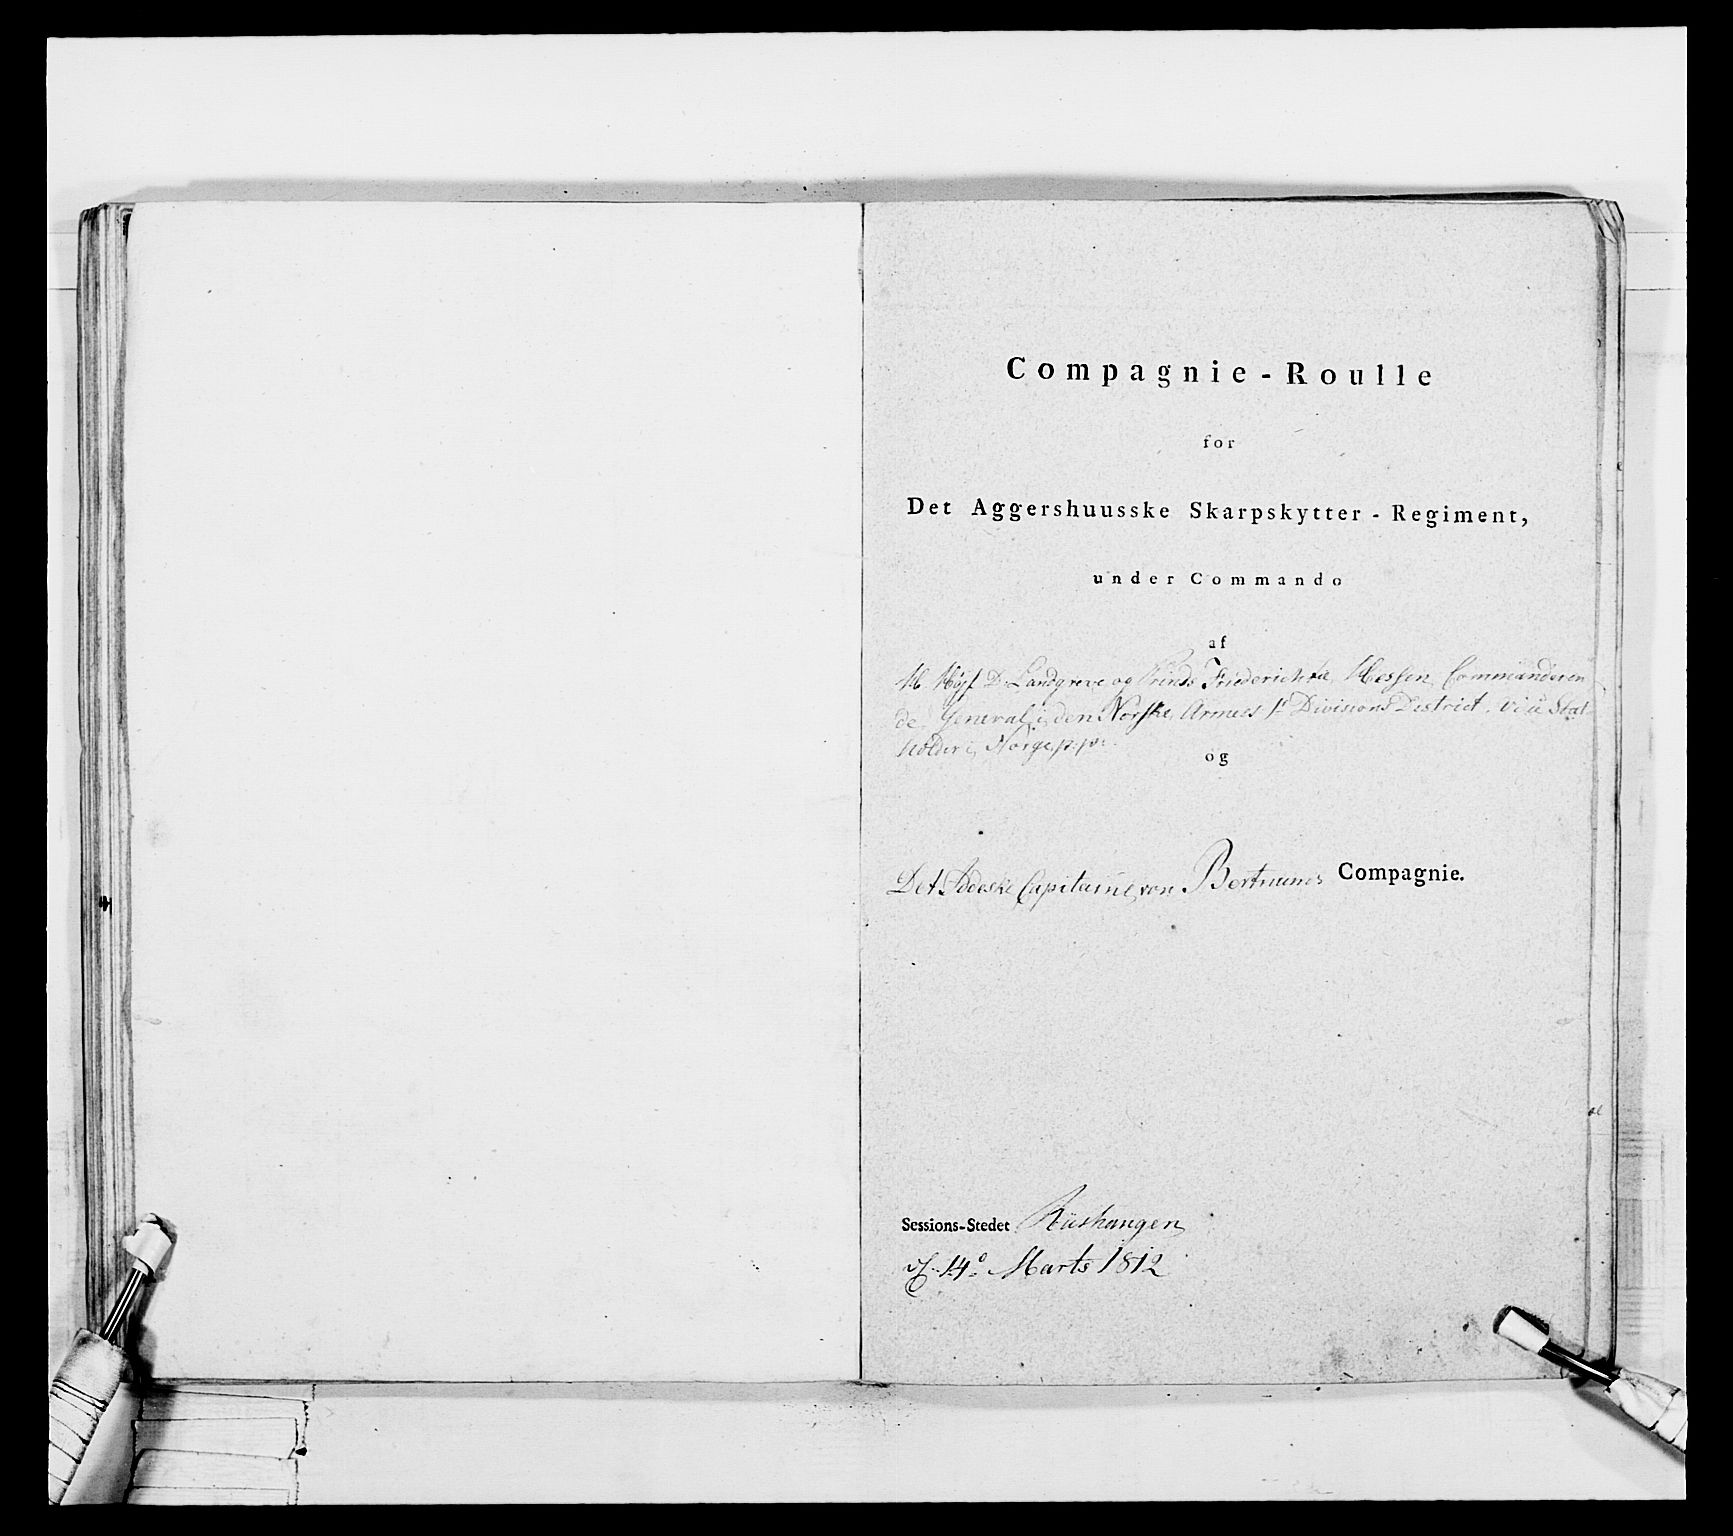 Compagnie-Roulle
for
Det Aggershuusske Skarpskytter-Regiment,
under Commando
af
H. Høyf. D. Landgreve og Prinds Friederich til Hessen, Commanderen
de General i den Norske Armees 1te Divisions District, Stat
holder i Norge p.p.
og
Det Capitaine von Compagnie.
Sessions-Stedet
14de Marts 1812